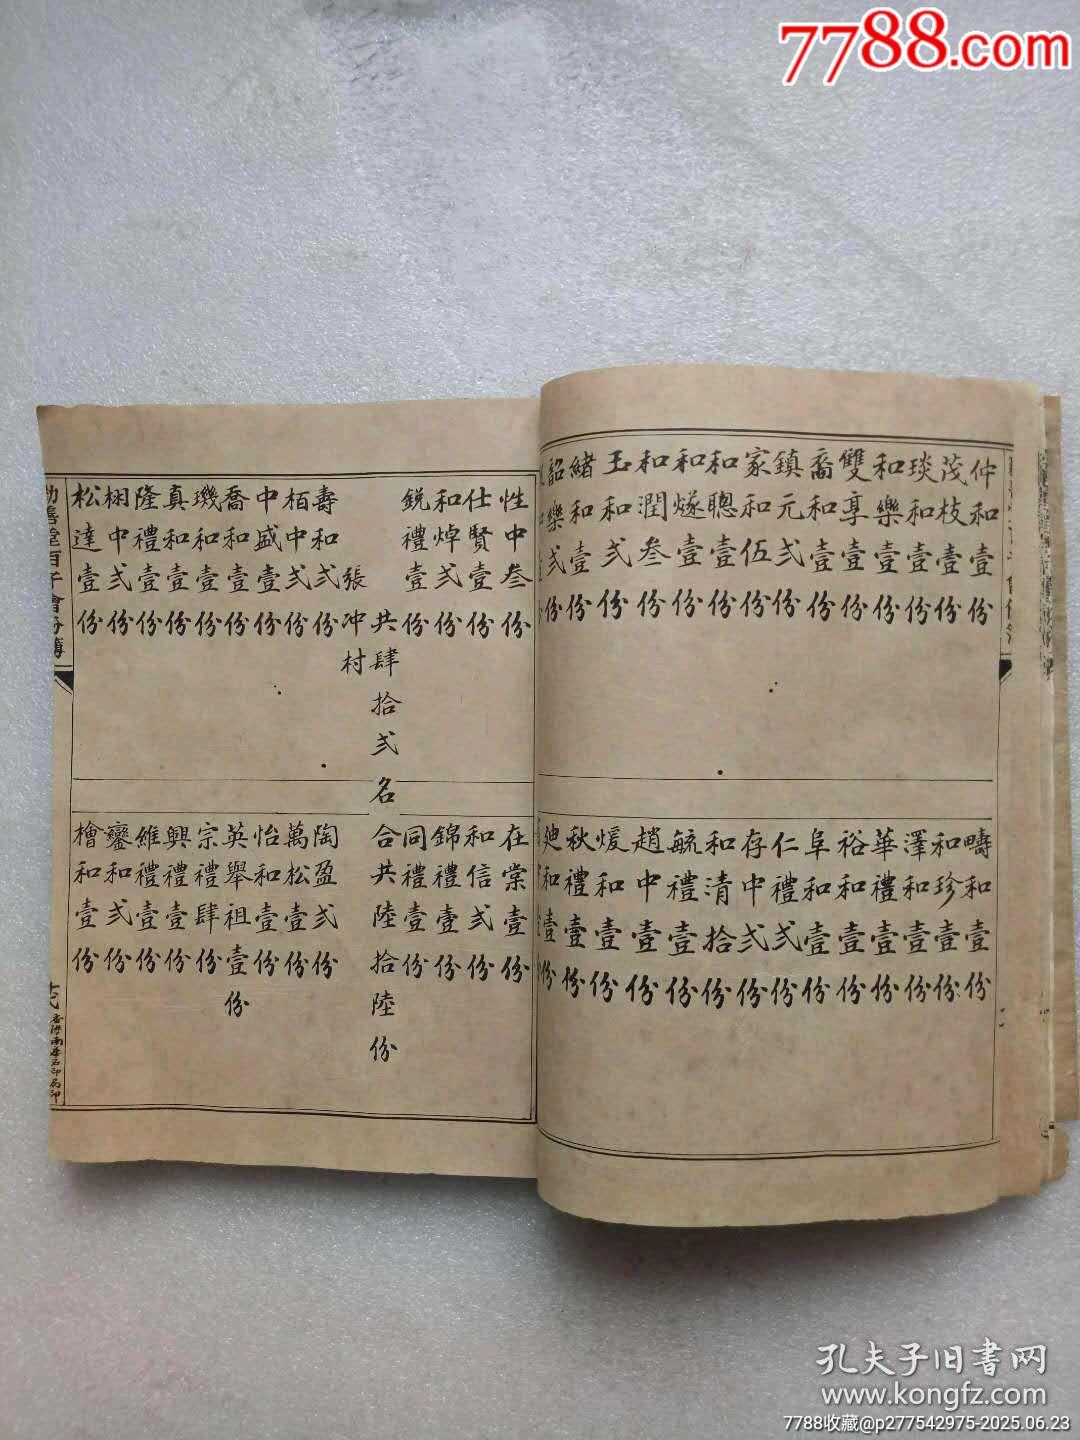 7788.com
仲和壹份
茂枝壹份
琰和壹份
和樂壹份
雙享壹份
裔和壹份
鎮元弍份
家和伍份
和聰壹份
和燧壹份
和潤叁份
玉和弍份
緒和壹份
韶樂弍份
疇和壹份
和珍壹份
澤和壹份
華禮壹份
裕和壹份
阜和壹份
仁禮弍份
存中弍份
和清拾份
毓禮壹份
趙中壹份
煖和壹份
秋禮壹份
廸和壹份
性中叁份
仕賢壹份
和焯弍份
銳禮壹份
在棠壹份
和信弍份
錦禮壹份
同禮壹份
共肆拾弍名
合共陸拾陸份
張冲村
壽和弍份
栢中弍份
中盛壹份
喬和壹份
璣和壹份
真和壹份
隆禮壹份
栩中弍份
松達壹份
陶盈弍份
萬松壹份
怡和壹份
英舉祖壹份
宗禮肆份
興禮壹份
維禮壹份
鑾和弍份
檜和壹份
善堂百子會份簿
孔夫子旧書网
www.kongfz.com
7788收藏@p277542975-2025.06.23